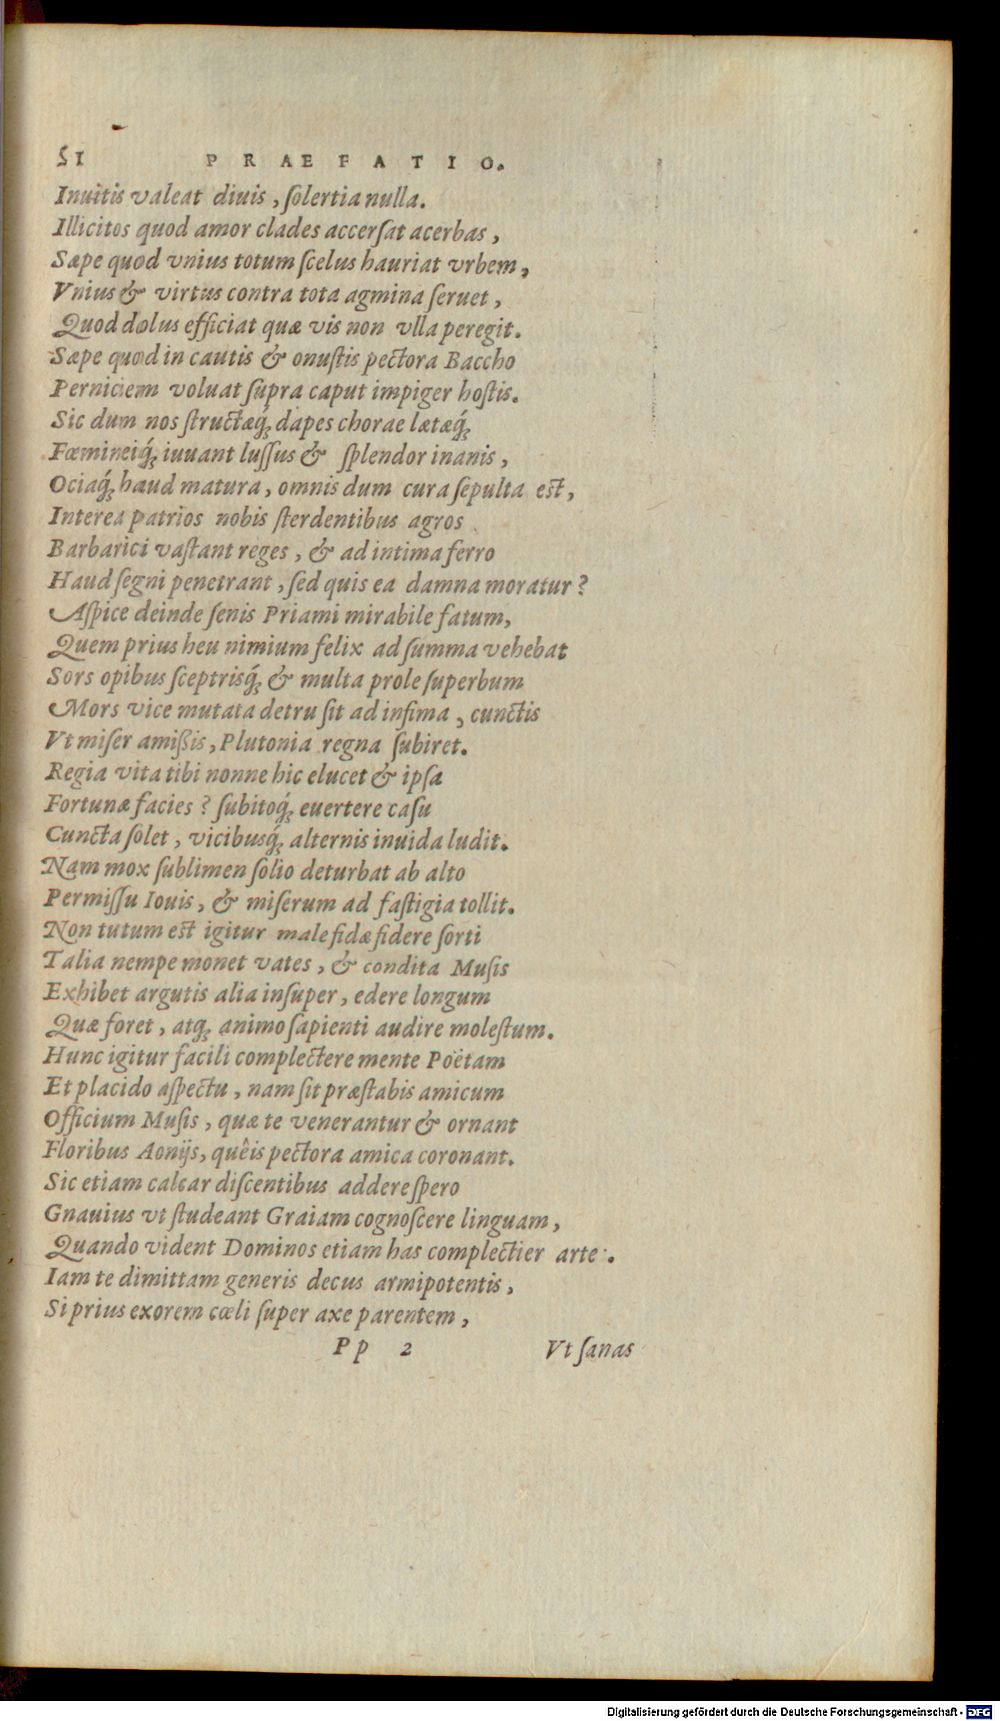 SI PRAEFATIO.
Inuitis valeat diuis, ſolertia nulla.
Illicitos quod amor clades accerſat acerbas,
Sæpe quod vnius totum ſcelus hauriat vrbem,
Vnius & virtus contra tota agmina ſeruet,
Quod dolus efficiat quæ vis non vlla peregit.
Sæpe quod in cautis & onuſtis pectora Baccho
Perniciem voluat ſupra caput impiger hoſtis.
Sic dum nos ſtructæq́ꝫ dapes chorae lætæq́ꝫ
Fœmineiq́ꝫ iuuant luſſus & ſplendor inanis,
Ociaq́ꝫ haud matura, omnis dum cura ſepulta est,
Interea patrios nobis ſterdentibus agros
Barbarici vaſtant reges, & ad intima ferro
Haud ſegni penetrant, ſed quis ea damna moratur?
Aſpice deinde ſenis Priami mirabile fatum,
Quem prius heu nimium felix ad ſumma vehebat
Sors opibus ſceptrisq́ꝫ & multa prole ſuperbum
Mors vice mutata detru ſit ad infima, cunctis
Vt miſer amißis, Plutonia regna ſubiret.
Regia vita tibi nonne hic elucet & ipſa
Fortunæ facies? ſubitoq́ꝫ euertere caſu
Cuncta ſolet, vicibusq́ꝫ alternis inuida ludit.
Nam mox ſublimen ſolio deturbat ab alto
Permiſſu Iouis, & miſerum ad faſtigia tollit.
Non tutum est igitur male fidæ fidere ſorti
Talia nempe monet vates, & condita Muſis
Exhibet argutis alia inſuper, edere longum
Quæ foret, atqꝫ animo ſapienti audire moleſtum.
Hunc igitur facili complectere mente Poëtam
Et placido aſpectu, nam ſit præſtabis amicum
Officium Muſis, quæ te venerantur & ornant
Floribus Aonijs, quêis pectora amica coronant.
Sic etiam calcar diſcentibus addere ſpero
Gnauius vt ſtudeant Graiam cognoſcere linguam,
Quando vident Dominos etiam has complectier arte.
Iam te dimittam generis decus armipotentis,
Si prius exorem cœli ſuper axe parentem,
Pp 2 Vt ſanas
Digitalisierung gefördert durch die Deutsche Forschungsgemeinschaft - DFG